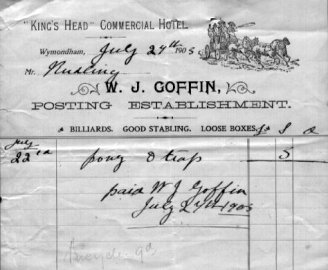 "KING'S HEAD" COMMERCIAL HOTEL,
Wymondham, July 27th 1905
Mr. Nudling
W. J. GOFFIN,
POSTING ESTABLISHMENT.
BILLIARDS. GOOD STABLING. LOOSE BOXES. £ S d
July
22nd pony & trap 5
paid W J Goffin
July 27th 1905